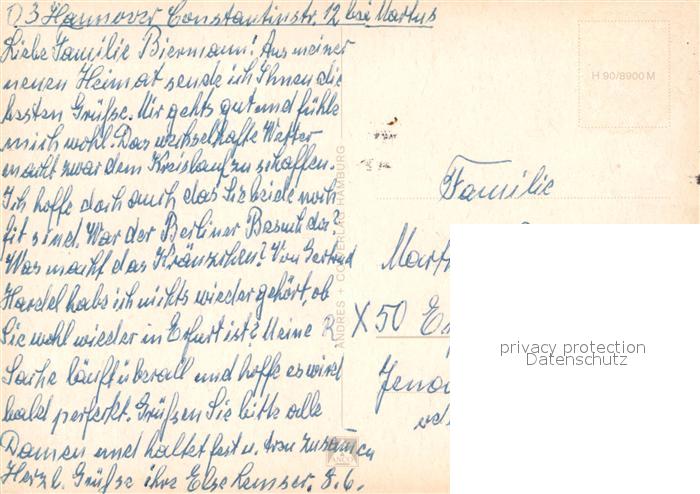 D 3 Hannover Constantinstr. 12 bei Martus
Liebe Familie Biermann! Aus meiner
neuen Heimat sende ich Ihnen die
besten Grüße. Mir gehts gut und fühle
mich wohl. Das wechselhafte Wetter
macht zwar dem Kreislauf zu schaffen.
Ich hoffe doch auch das Sie beide noch
fit sind. War der Berliner Besuch da?
Was macht das Kränzchen? Von Gertrud
Hardel habe ich nichts wieder gehört, ob
Sie wohl wieder in Erfurt ist? Meine R.
Sache läuft überall und hoffe es wird
bald perfekt. Grüßen Sie bitte alle
Damen und haltet fest u. treu zusammen
Herzl. Grüße ihre Else 8.6.
ANDRES + CO VERLAG HAMBURG
H 90/8900 M
Familie
X 50
privacy protection
Datenschutz